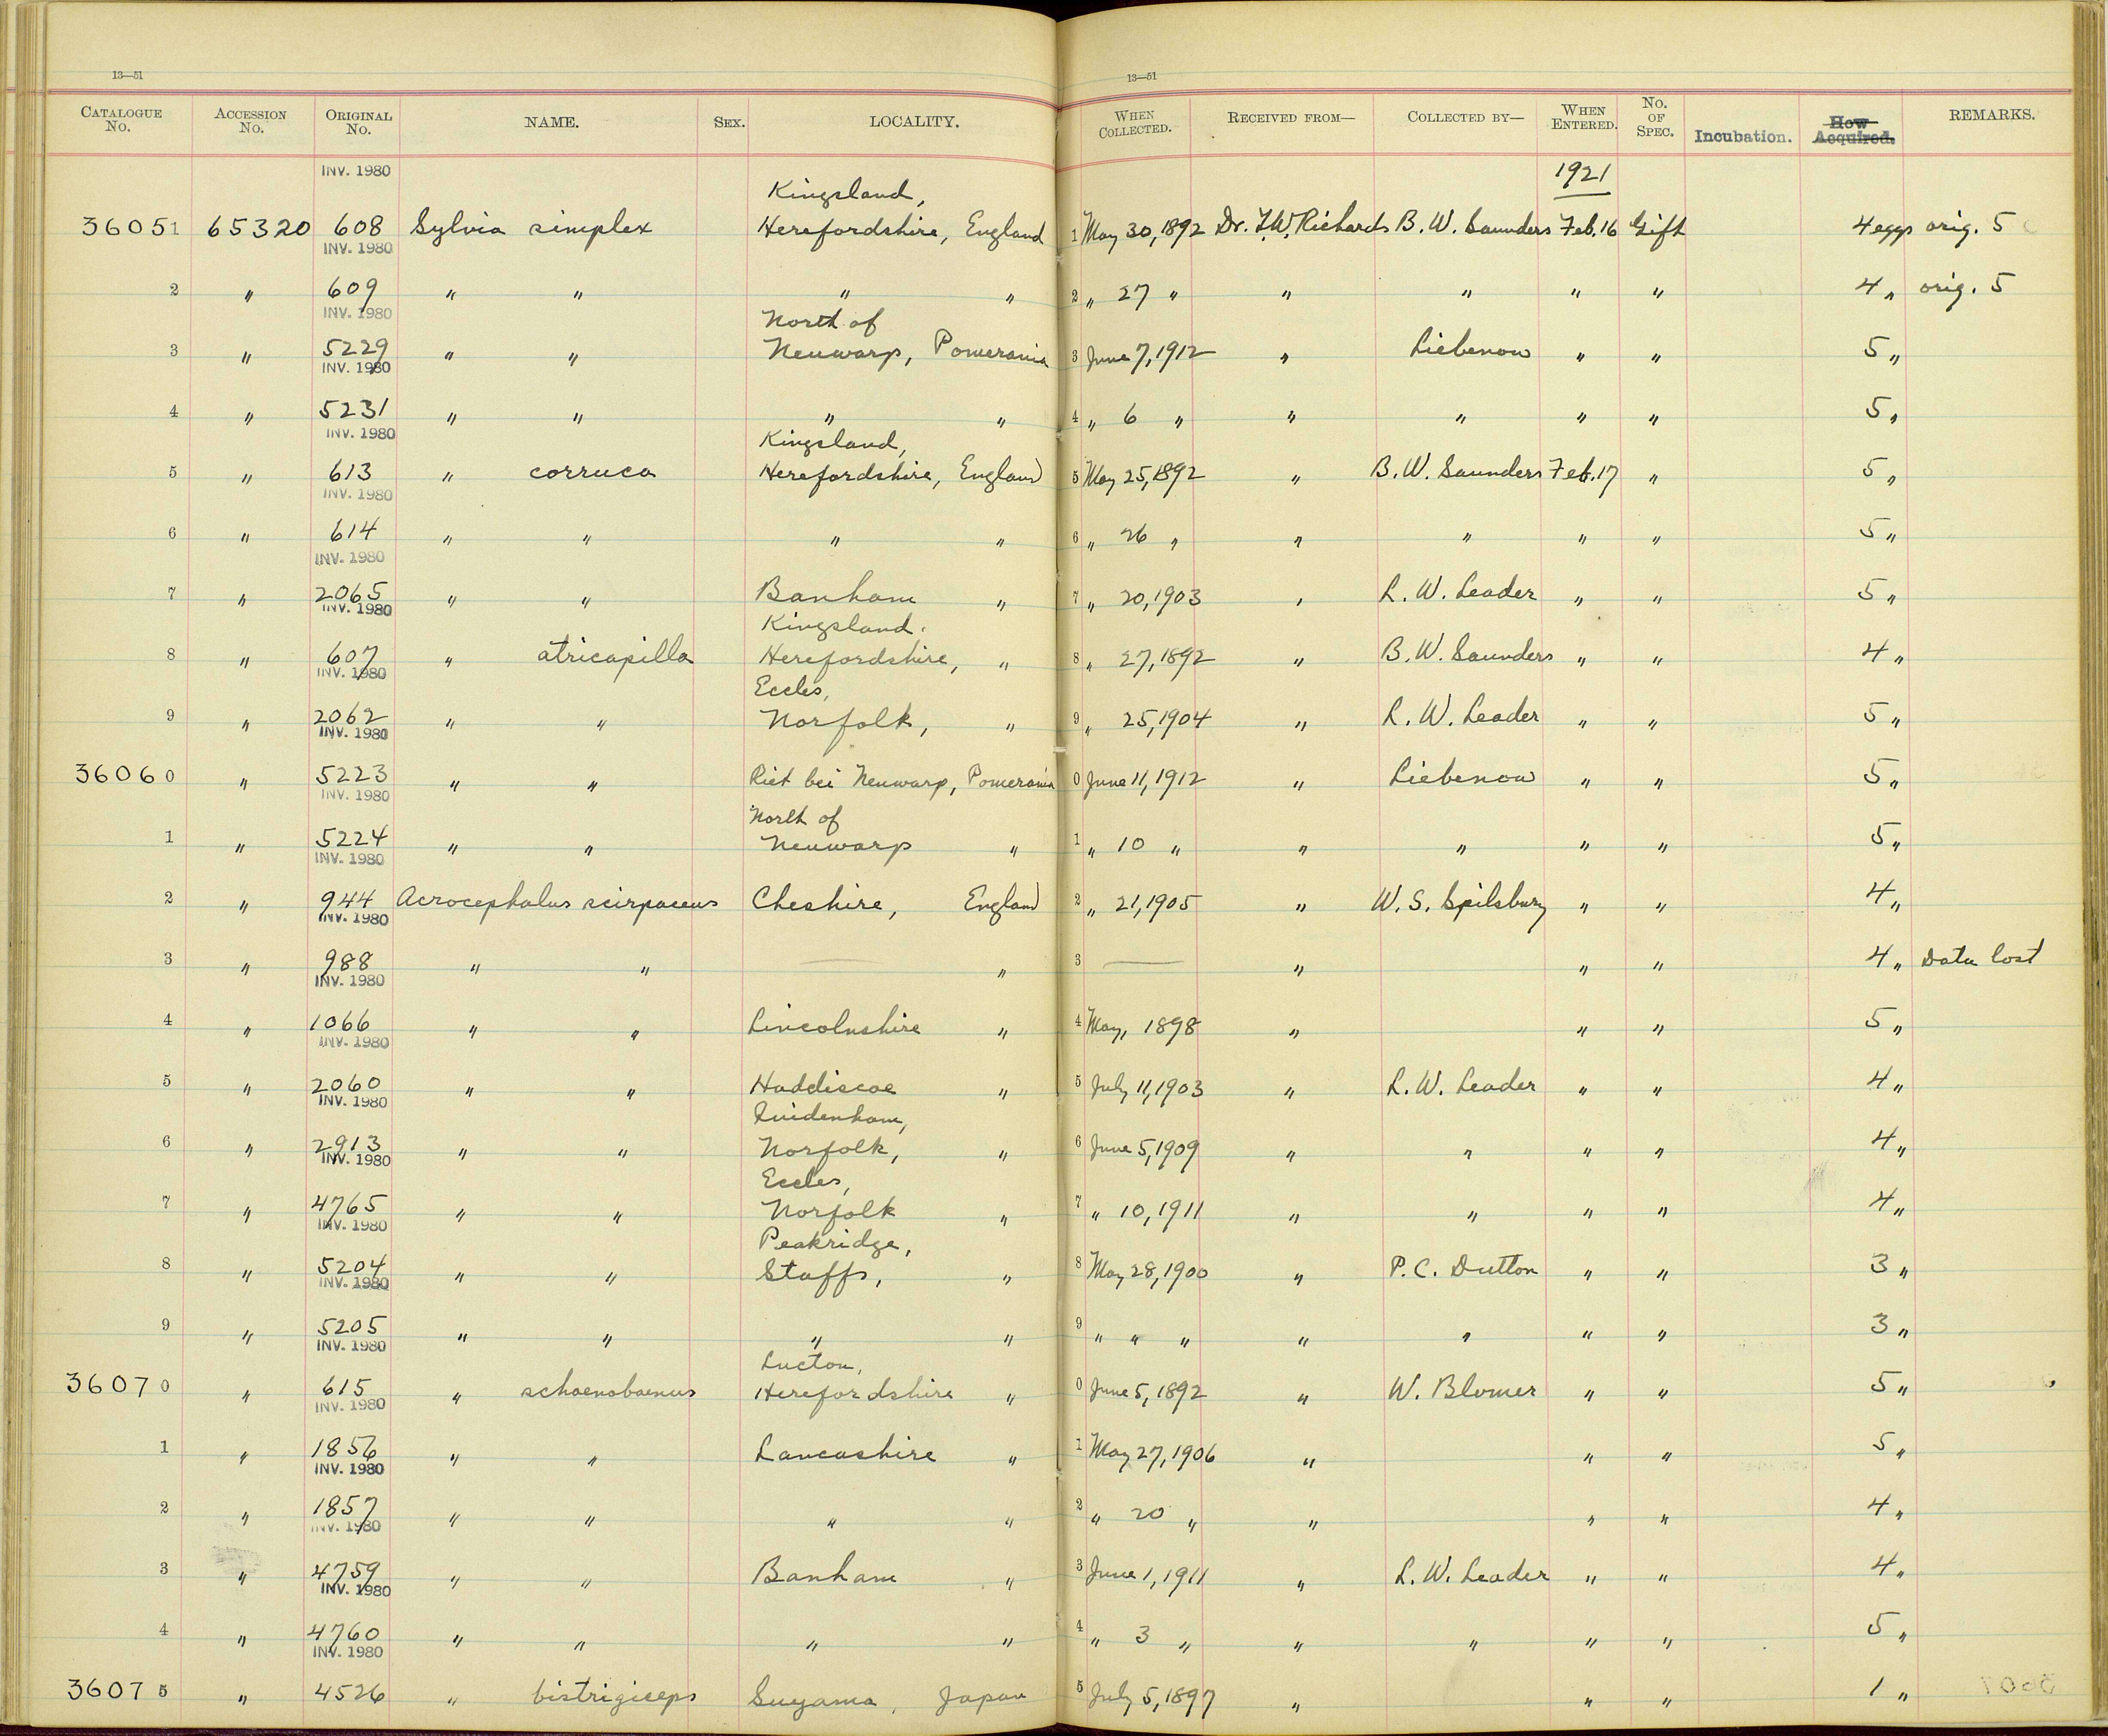 13—51
13—51
CATALOGUE No. ACCESSION No. ORIGINAL No. NAME. SEX. LOCALITY. WHEN COLLECTED. RECEIVED FROM— COLLECTED BY— WHEN ENTERED. No. OF SPEC. Incubation. How Acquired. REMARKS.
INV. 1980 1921
Kingsland,
36051 65320 608 Sylvia simplex Herefordshire, England 1 May 30, 1892 Dr. T.W. Richards B. W. Saunders Feb. 16 Gift 4 eggs orig. 5
INV. 1980
2 " 609 " " " " 2 " 27 " " " " " 4 " orig. 5
INV. 1980
North of
3 " 5229 " " Neuwarp, Pomerania 3 June 7, 1912 " Liebenow " " 5 "
INV. 1980
4 " 5231 " " " " 4 " 6 " " " " " 5 "
INV. 1980
Kingsland,
5 " 613 " corruca Herefordshire, England 5 May 25, 1892 " B. W. Saunders Feb. 17 " 5 "
INV. 1980
6 " 614 " " " " 6 " 26 " " " " " 5 "
INV. 1980
7 " 2065 " " Banham " 7 " 20, 1903 " L. W. Leader " " 5 "
INV. 1980
Kingsland.
8 " 607 " atricapilla Herefordshire, " 8 " 27, 1892 " B. W. Saunders " " 4 "
INV. 1980
Eccles,
9 " 2062 " " Norfolk, " 9 " 25, 1904 " L. W. Leader " " 5 "
INV. 1980
36060 " 5223 " " Riet bei Neuwarp, Pomerania 0 June 11, 1912 " Liebenow " " 5 "
INV. 1980
North of
1 " 5224 " " Neuwarp " 1 " 10 " " " " " 5 "
INV. 1980
2 " 944 Acrocephalus scirpaceus Cheshire, England 2 " 21, 1905 " W. S. Spilsbury " " 4 "
INV. 1980
3 " 988 " " — " 3 — " " " 4 " Data lost
INV. 1980
4 " 1066 " " Lincolnshire " 4 May, 1898 " " " 5 "
INV. 1980
5 " 2060 " " Haddiscoe " 5 July 11, 1903 " L. W. Leader " " 4 "
INV. 1980
Quidenham,
6 " 2913 " " Norfolk, " 6 June 5, 1909 " " " " 4 "
INV. 1980
Eccles,
7 " 4765 " " Norfolk " 7 " 10, 1911 " " " " 4 "
INV. 1980
Peakridge,
8 " 5204 " " Staffs, " 8 May 28, 1900 " P. C. Dutton " " 3 "
INV. 1980
9 " 5205 " " " " 9 " " " " " " " 3 "
INV. 1980
Lucton,
36070 " 615 " schoenobaenus Herefordshire " 0 June 5, 1892 " W. Blomer " " 5 "
INV. 1980
1 " 1856 " " Lancashire " 1 May 27, 1906 " " " 5 "
INV. 1980
2 " 1857 " " " " 2 " 20 " " " " 4 "
INV. 1980
3 " 4759 " " Banham " 3 June 1, 1911 " L. W. Leader " " 4 "
INV. 1980
4 " 4760 " " " " 4 " 3 " " " " " 5 "
INV. 1980
36075 " 4526 " bistrigiceps Suyama, Japan 5 July 5, 1897 " " " 1 "